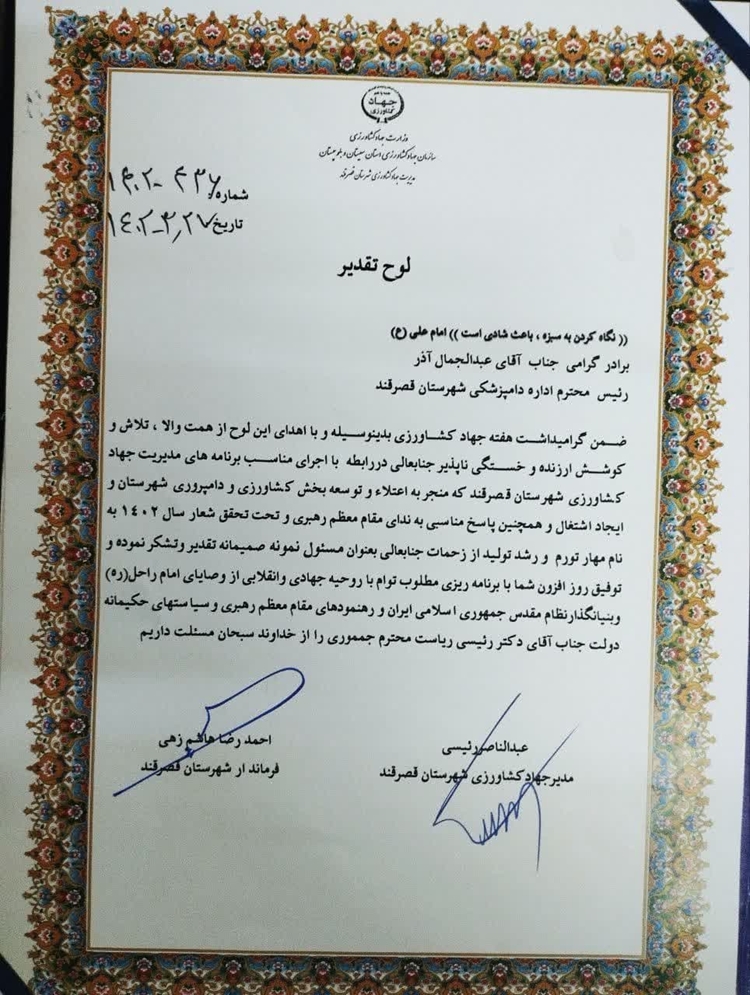 جهاد
کشاورزی
وزارت جهاد کشاورزی
سازمان جهاد کشاورزی استان سیستان و بلوچستان
مدیریت جهاد کشاورزی شهرستان قصرقند
شماره
تاریخ ۱۴۰۲-۳٫۲۷
لوح تقدیر
(( نگاه کردن به سبزه ، باعث شادی است )) امام علی (ع)
برادر گرامی جناب آقای عبدالجمال آذر
رئیس محترم اداره دامپزشکی شهرستان قصرقند
ضمن گرامیداشت هفته جهاد کشاورزی بدینوسیله و با اهدای این لوح از همت والا ، تلاش و
کوشش ارزنده و خستگی ناپذیر جنابعالی دررابطه با اجرای مناسب برنامه های مدیریت جهاد
کشاورزی شهرستان قصرقند که منجر به اعتلاء و توسعه بخش کشاورزی و دامپروری شهرستان و
ایجاد اشتغال و همچنین پاسخ مناسبی به ندای مقام معظم رهبری و تحت تحقق شعار سال ۱۴۰۲ به
نام مهار تورم و رشد تولید از زحمات جنابعالی بعنوان مسئول نمونه صمیمانه تقدیر وتشکر نموده و
توفیق روز افزون شما با برنامه ریزی مطلوب توام با روحیه جهادی وانقلابی از وصایای امام راحل(ره)
وبنیانگذارنظام مقدس جمهوری اسلامی ایران و رهنمودهای مقام معظم رهبری و سیاستهای حکیمانه
دولت جناب آقای دکتر رئیسی ریاست محترم جمموری را از خداوند سبحان مسئلت داریم
عبدالناصررئیسی
مدیرجهادکشاورزی شهرستان قصرقند
احمد رضا هاشم زهی
فرماند ار شهرستان قصرقند